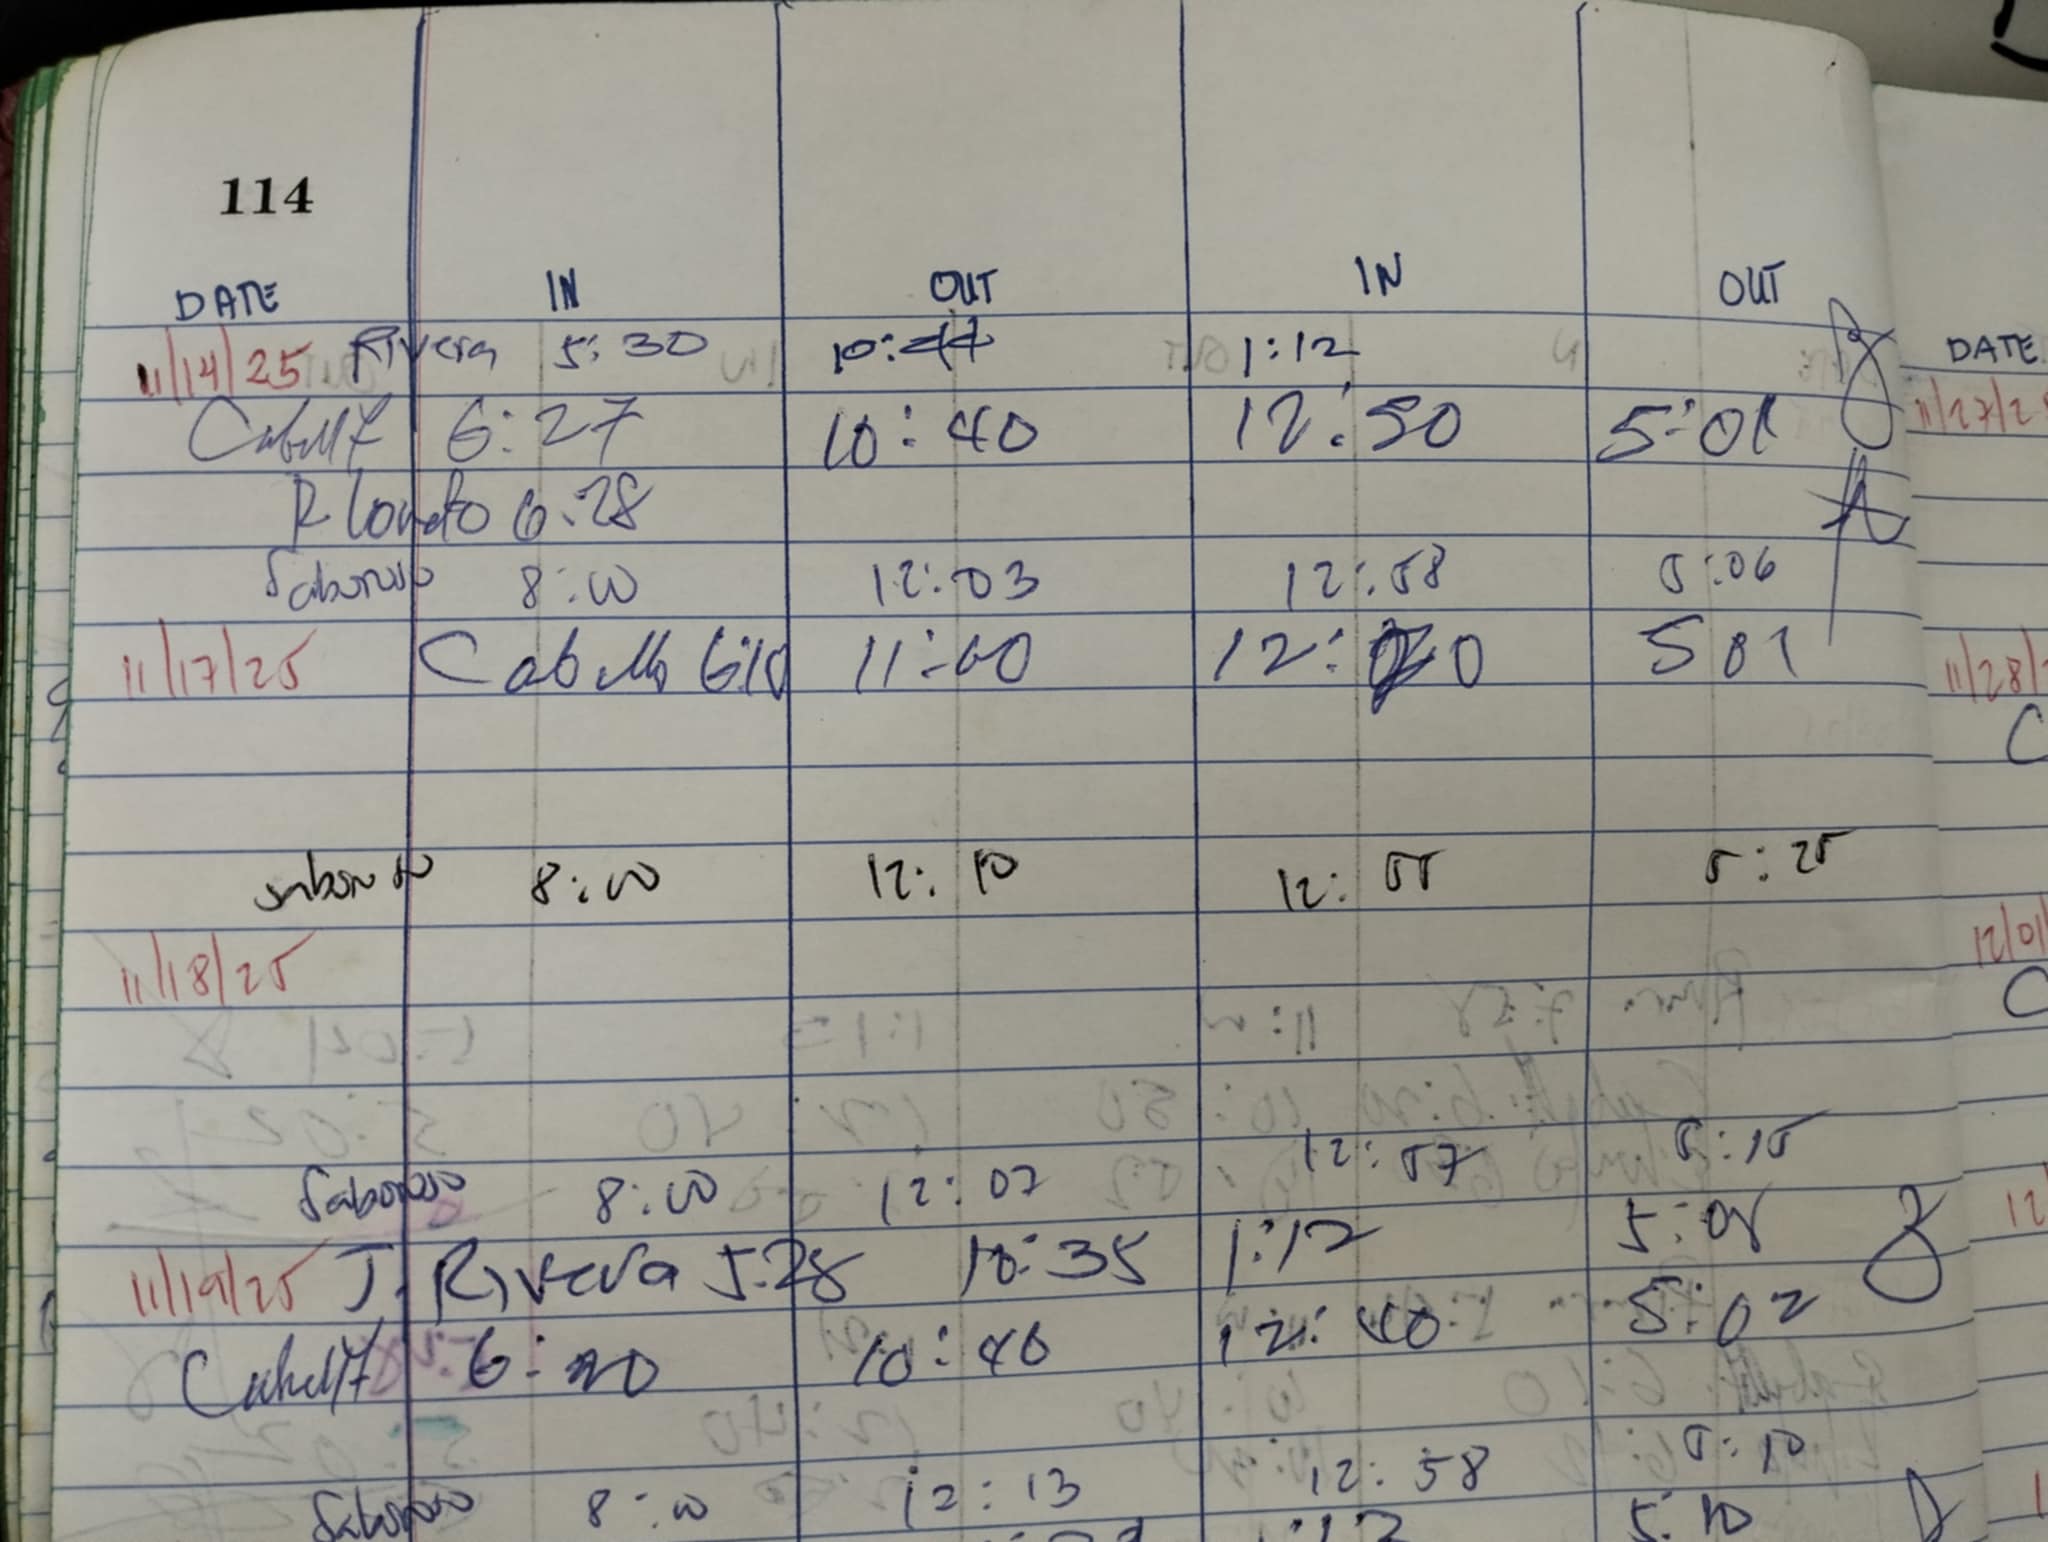 114
DATE IN OUT IN OUT
11/14/25 Rivera 5:30 10:44 1:12
6:27 10:40 12:50 5:01
R Londo 6:28
Saboroso 8:00 12:03 12:58 5:06
11/17/25 Cabello 6:10 11:40 501
8:00 12:10 12:55 5:25
11/18/25
Saboroso 8:00 12:07 12:57 5:15
11/19/25 J. Rivera 5:28 10:35 1:12 5:08
6:20 10:40 12:40 5:02
Saboroso 8:00 12:13 12:58 5:10
5:10
DATE
11/27/2
11/28/
C
12/01/
C
12